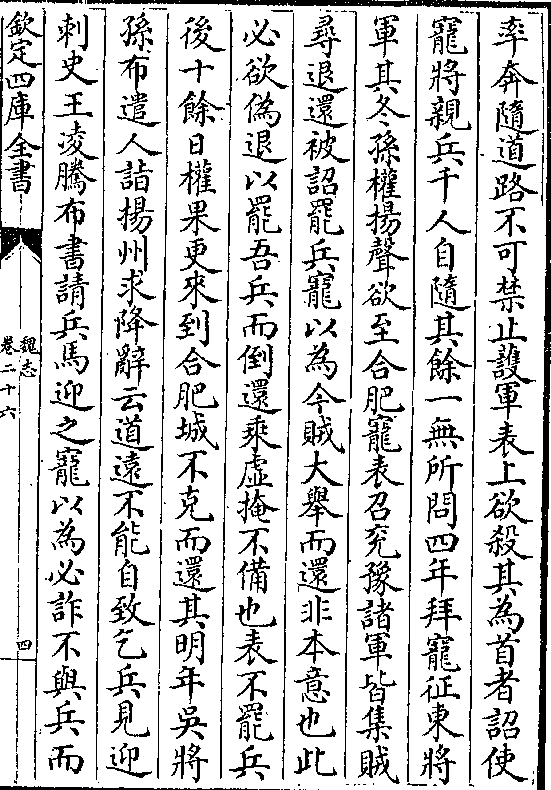 率奔隨道路不可禁止護軍表上欲殺其為首者詔使
寵將親兵千人自隨其餘一無所問四年拜寵征東將
軍其冬孫權揚聲欲至合肥寵表召兖豫諸軍皆集賊
尋退還被詔罷兵寵以為今賊大舉而還非本意也此
必欲偽退以罷吾兵而倒還乘虛掩不備也表不罷兵
後十餘日權果更來到合肥城不克而還其明年吳將
孫布遣人詣揚州求降辭云道遠不能自致乞兵見迎
刺史王凌騰布書請兵馬迎之寵以為必詐不與兵而
欽定四庫全書
魏志
卷二十六
四